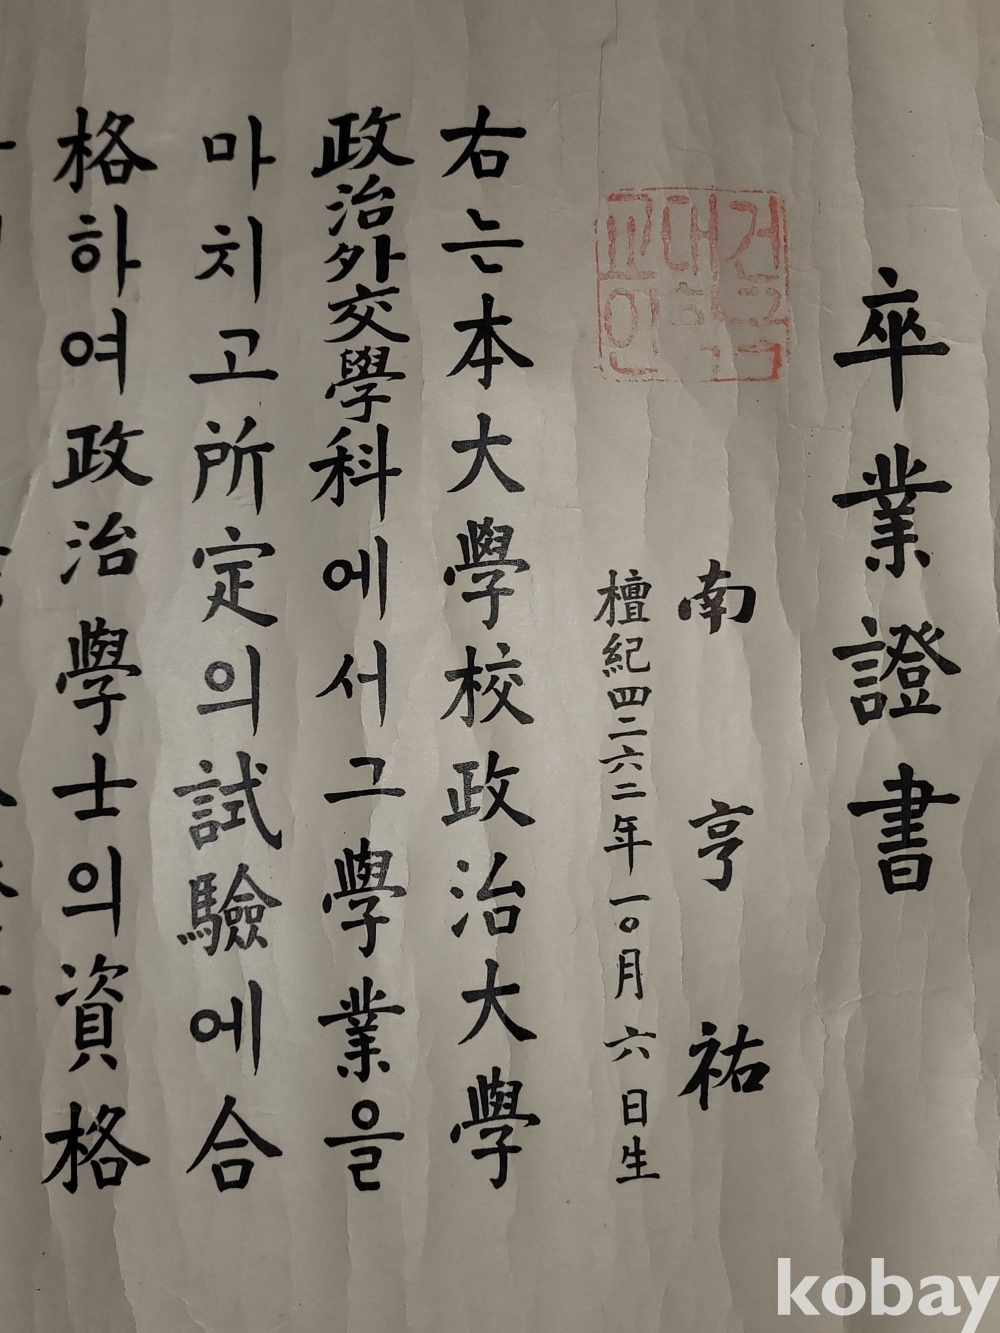 卒業證書
南亨祐
檀紀四二六二年一〇月六日生
건국
대학
교인
右는本大學校政治大學
政治外交學科에서그學業을
마치고所定의試驗에合
格하여政治學士의資格
kobay